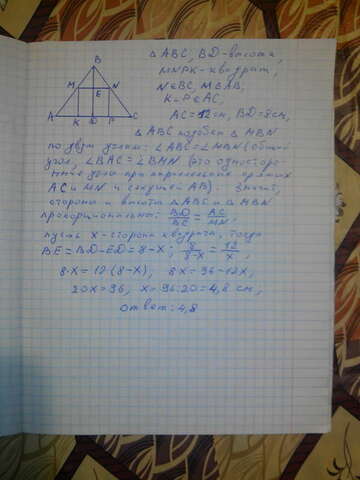 B
△ABC, BD-высота,
M E N
MNPK-квадрат,
N∈BC, M∈AB,
A K D P C
K-P∈AC,
AC=12см, BD=8см,
△ABC подобен △MBN
по двум углам: ∠ABC=∠MBN (общий
угол, ∠BAC=∠BMN (это односторон-
ние углы при параллельных прямых
AC и MN и секущей AB). Значит,
стороны и высоты △ABC и △MBN
пропорциональны: BD/BE = AC/MN,
пусть x-сторона квадрата, тогда
BE=BD-ED=8-x; 8/8-x = 12/x,
8·x=12·(8-x), 8x=96-12x,
20x=96, x=96:20=4,8 см,
ответ: 4,8